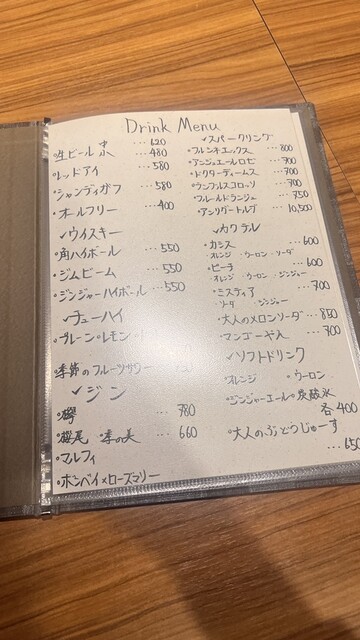 Drink Menu
中 ...620
・生ビール 小 ...480
・レッドアイ ...580
・シャンディガフ ...580
・オールフリー ...400
✓ウイスキー
・角ハイボール ...550
・ジムビーム ...550
・ジンジャーハイボール ...550
✓チューハイ
・プレーン・レモン
・季節のフルーツサワー
✓ジン
780
季の美 ... 660
・マルフィ
・ボンベイ×ローズマリー
✓スパークリング
・フルシネエックス ...800
・アンジュエールロゼ ...700
・ドクターディームス ...700
・ランブルスコロッソ ...700
・フルールドランジェ ...750
・アンリゲートルブ ...10,500
✓カクテル
・カシス ...600
オレンジ ウーロン ソーダ
・ピーチ ...600
オレンジ ウーロン ジンジャー
・ミスティア ...700
ソーダ ジンジャー
・大人のメロンソーダ ...850
・マンゴーヤ ...700
✓ソフトドリンク
・オレンジ ・ウーロン
・ジンジャーエール ・炭酸水
各400
・大人のぶどうじゅーす
...650